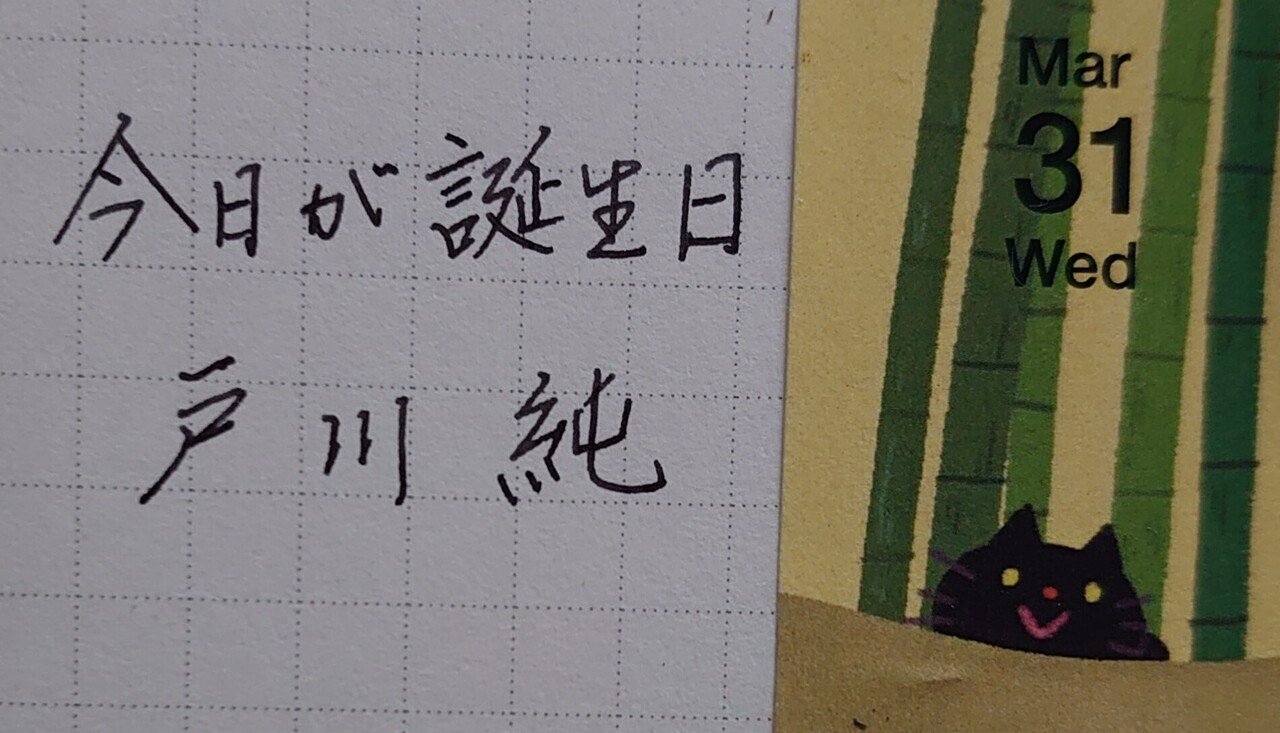 今日が誕生日
戸川 純
Mar
31
Wed